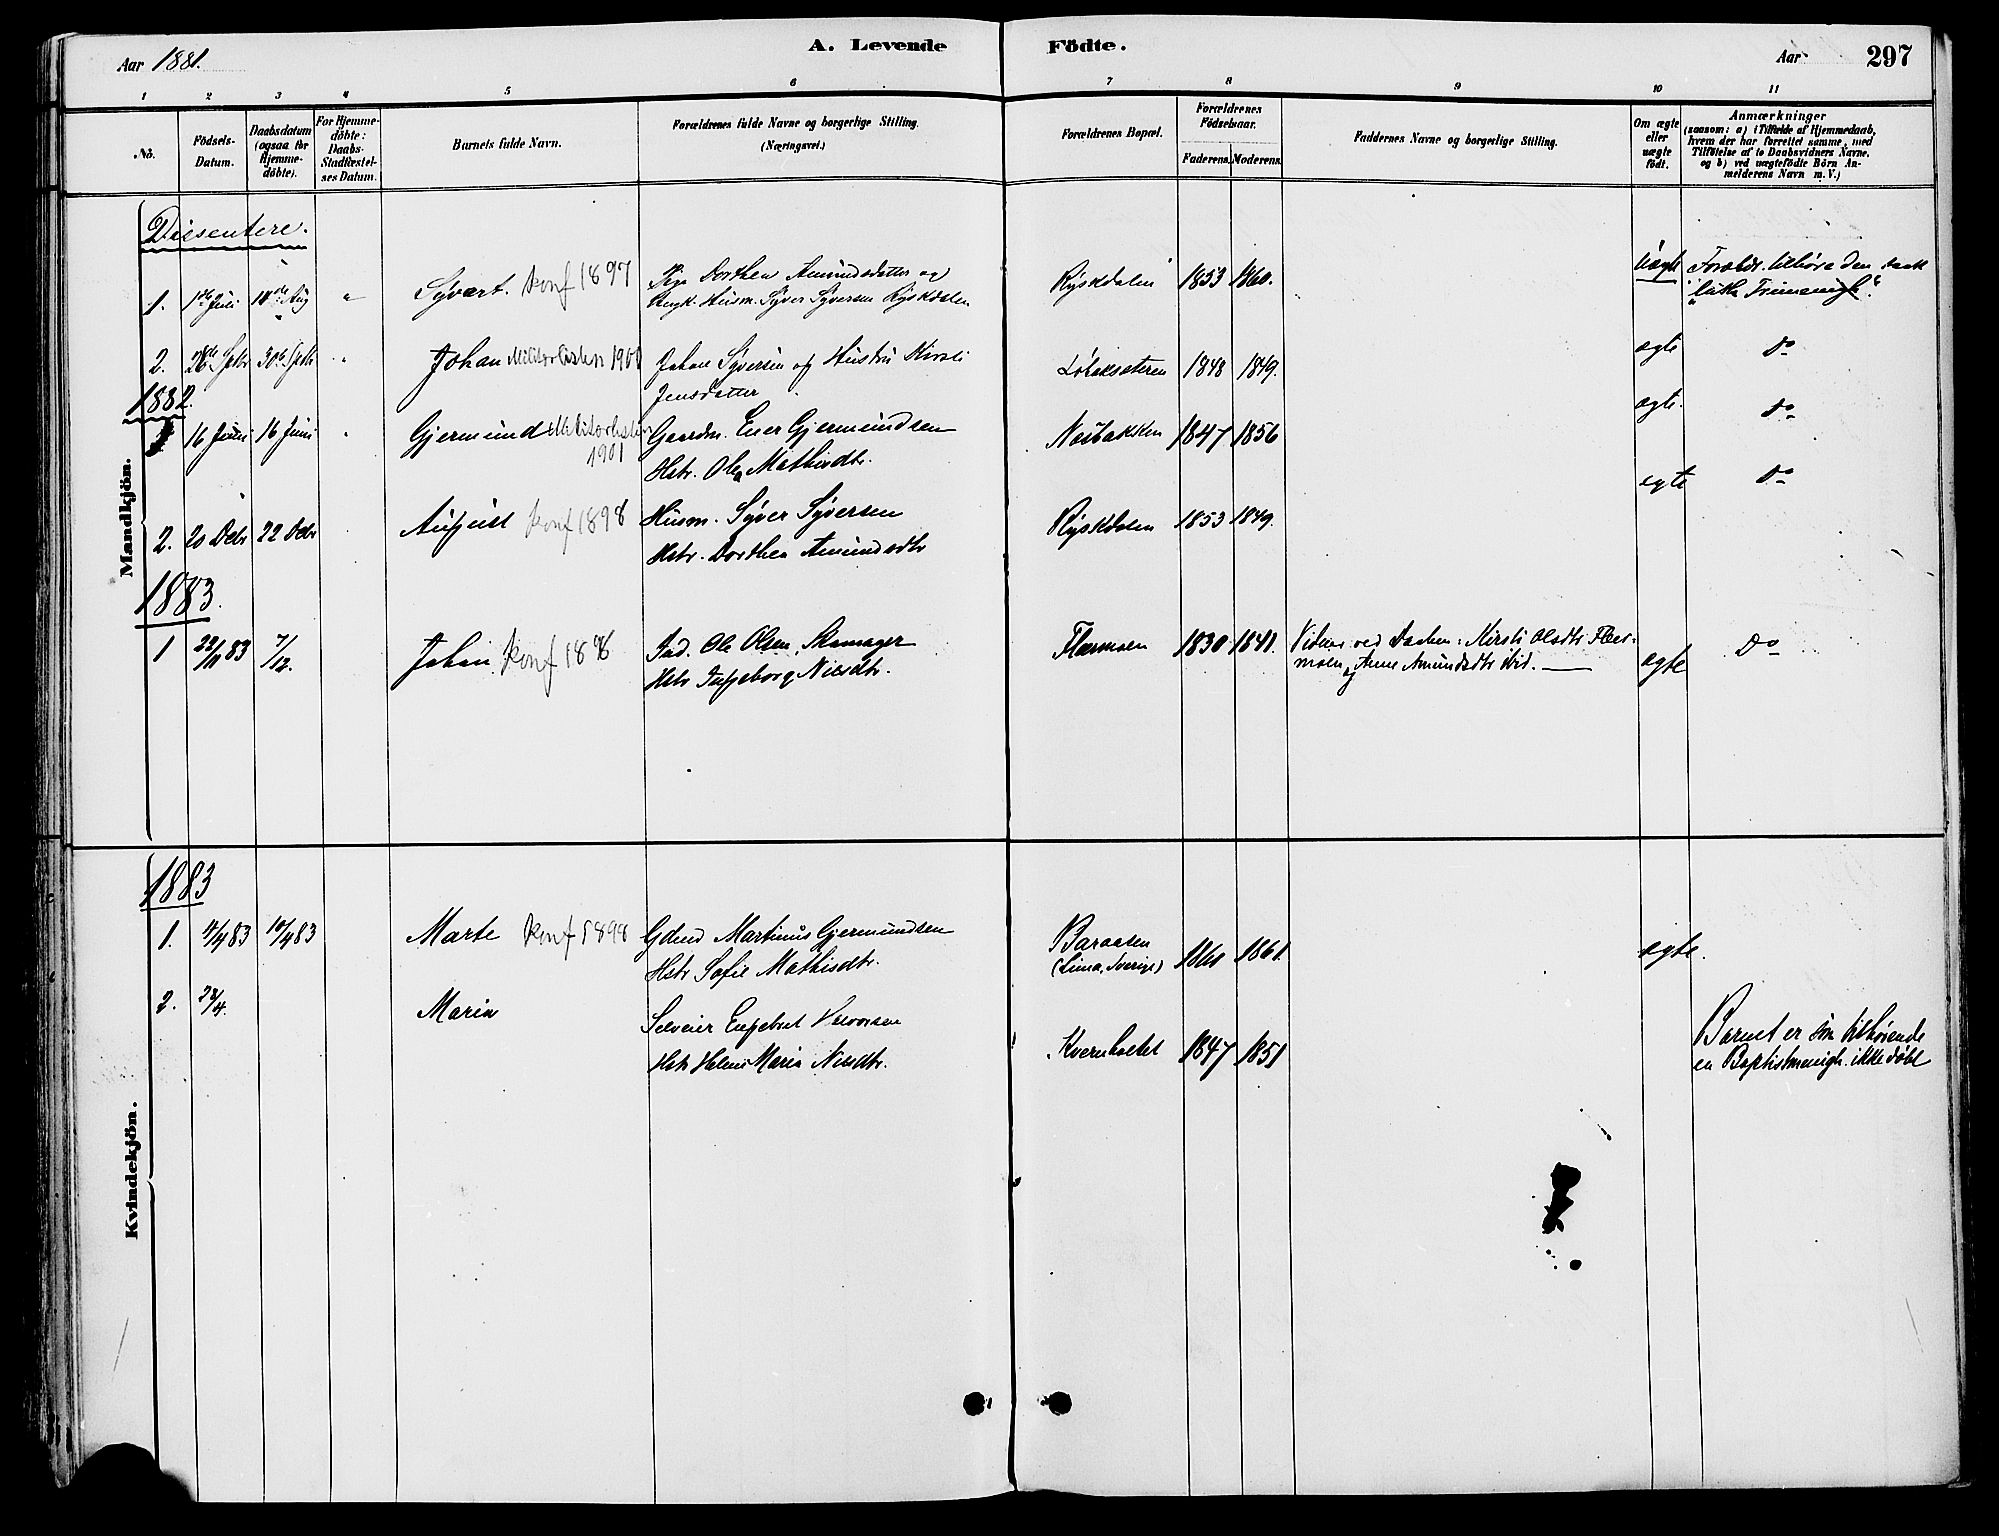 Aar 1881.
A. Levende Födte.
Aar 297
1 2 3 4 5 6 7 8 9 10 11
No.
Födsels-
Datum.
Daabsdatum
(ogsaa for
Hjemme-
döbte).
For Hjemme-
döbte:
Daabs-
Stadfæstel-
ses Datum.
Barnets fulde Navn.
Forældrenes fulde Navne og borgerlige Stilling.
(Næringsvei.)
Forældrenes Bopæl.
Forældrenes
Födselsaar.
Faderens. Moderens.
Faddernes Navne og borgerlige Stilling.
Om ægte
eller
uægte
födt.
Anmærkninger
(saasom: a) i Tilfælde af Hjemmedaab,
hvem der har forrettet samme, med
Tilföielse af to Daabsvidners Navne,
og b) ved uægtefödte Börn An-
melderens Navn m. V.)
Mandkjön.
Dissentere.
1. 1ste Juli 18de Aug " Syvert. Konf 1897 Pige Dorthea Amundsdatter og
Husm. Syver Syversen Ryskdalen
Ryskdalen 1853 1860. Uægte Foræld. tilhøre den
luth. Frimenigh.
2. 28de Sptbr 30te Sptb " Johan Militærlisten 1901 Johan Syversen og Hustru Kirsti
Jensdatter
1848 1849. ægte do
1882.
16 Juni 16 Juni " Gjermund Militærlisten
1901
Gaardm. Eier Gjermundsen
Hstr. Olea Mathisdtr.
1847 1856 ægte. do
2. 20 Debr 22 Debr August Konf 1898 Husm. Syver Syversen
Hstr. Dorthea Amundsdtr
Ryskdalen 1853 1849. ægte do
1883.
1 22/11 83 7/12. Johan. Konf 1898 Ind. Ole Olsen,
Hstr Ingeborg Nilsdtr.
Flermoen 1830 1841. Vidner ved Daaben: Kirsti Olsdtr Fler-
moen og Anne Amundsdtr ibid.
ægte Do
Kvindekjön.
1883
1. 4/4 83 10/4 83 Marte Konf 1898 Martinus Gjermundsen
Hstr Sofie Mathisdtr.
Baraasen
(Lima, Sverige)
1860 1861 ægte.
2. 23/4. Maria Selveier Engebret Halvorsen
Hstr Helene Maria Nilsdtr.
Kvernholtet 1847 1851
Barnet er som tilhørende
en Baptistmenigh. ikke døbt